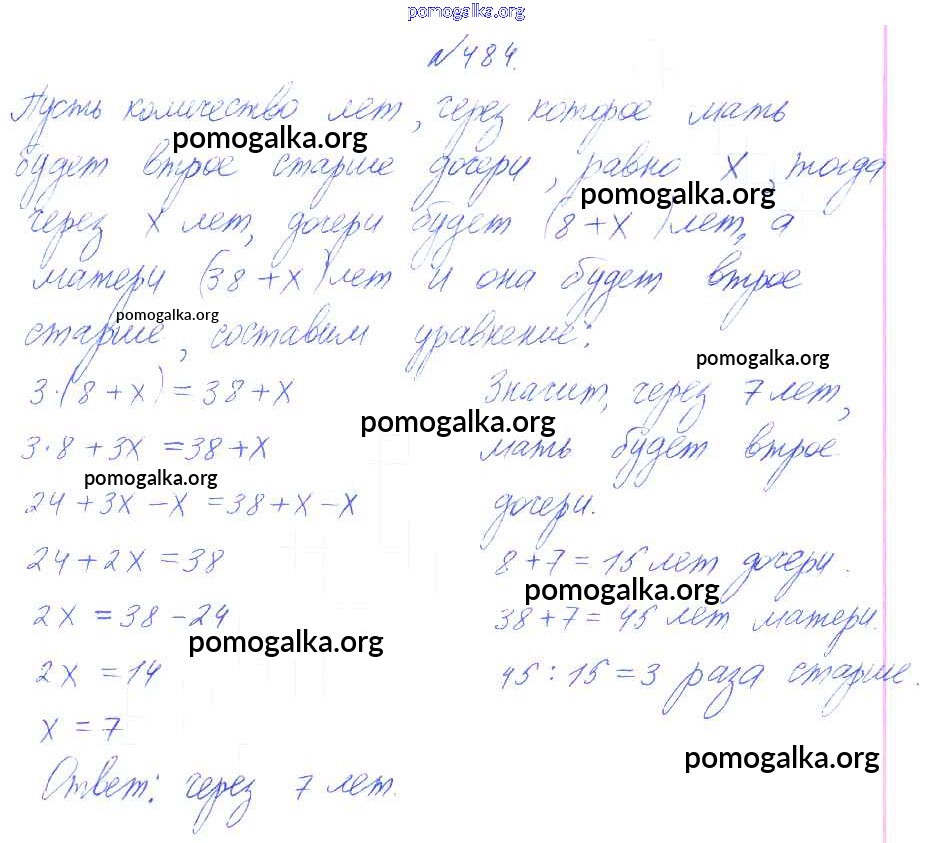 pomogalka.org
№484.
Пусть количество лет, через которое мать
pomogalka.org
будет втрое старше дочери, равно x, тогда
pomogalka.org
через x лет, дочери будет (8+x) лет, а
матери (38+x) лет и она будет втрое
pomogalka.org
старше, составим уравнение:
pomogalka.org
3·(8+x)=38+x
pomogalka.org
3·8+3x=38+x
pomogalka.org
24+3x-x=38+x-x
24+2x=38
2x=38-24
pomogalka.org
2x=14
x=7
Ответ: через 7 лет.
Значит, через 7 лет,
мать будет втрое
дочери.
8+7=15 лет дочери.
pomogalka.org
38+7=45 лет матери.
45:15=3 раза старше.
pomogalka.org